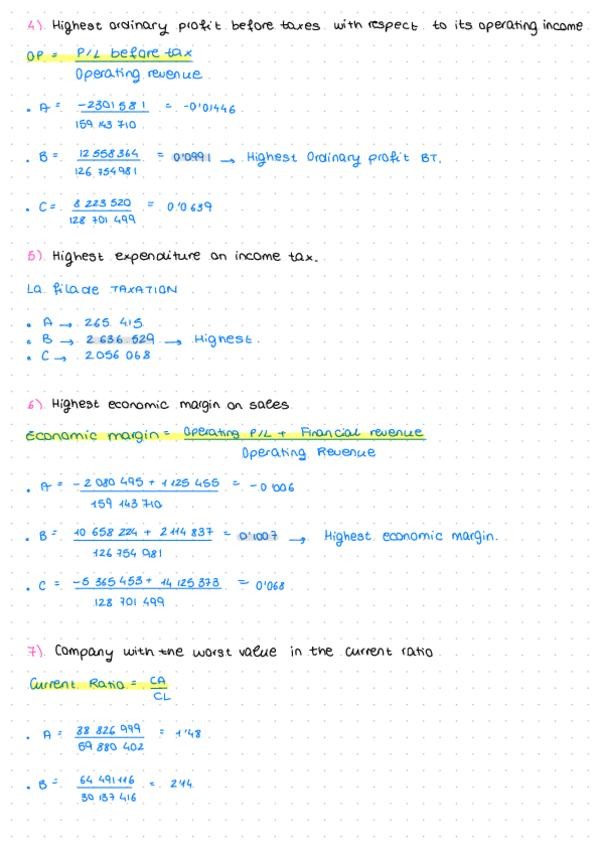 4). Highest ordinary profit before taxes with respect to its operating income
OP = P/L before tax
Operating revenue
• A = -2301581 = -0'01446
159 143 710
• B = 12 558 364 = 0'0991 → Highest Ordinary profit BT.
126 754981
• C = 8 223 520 = 0'0639
128 701 499
5). Highest expenditure on income tax.
La fila de TAXATION
• A → 265 415
• B → 2 636 529 → Highest.
• C → 2056 068
6). Highest economic margin on sales
Economic margin = Operating P/L + Financial revenue
Operating Revenue
• A = -2 080 495 + 1 125 455 = -0'006
159 143 710
• B = 10 658 224 + 2 114 837 = 0'1007 → Highest economic margin.
126 754 981
• C = -5 365 453 + 14 125 373 = 0'068
128 701 499
7). Company with the worst value in the current ratio
Current Ratio = CA
CL
• A = 88 826 999 = 1'48
59 880 402
• B = 64 491 116 = 2'14
30 137 416